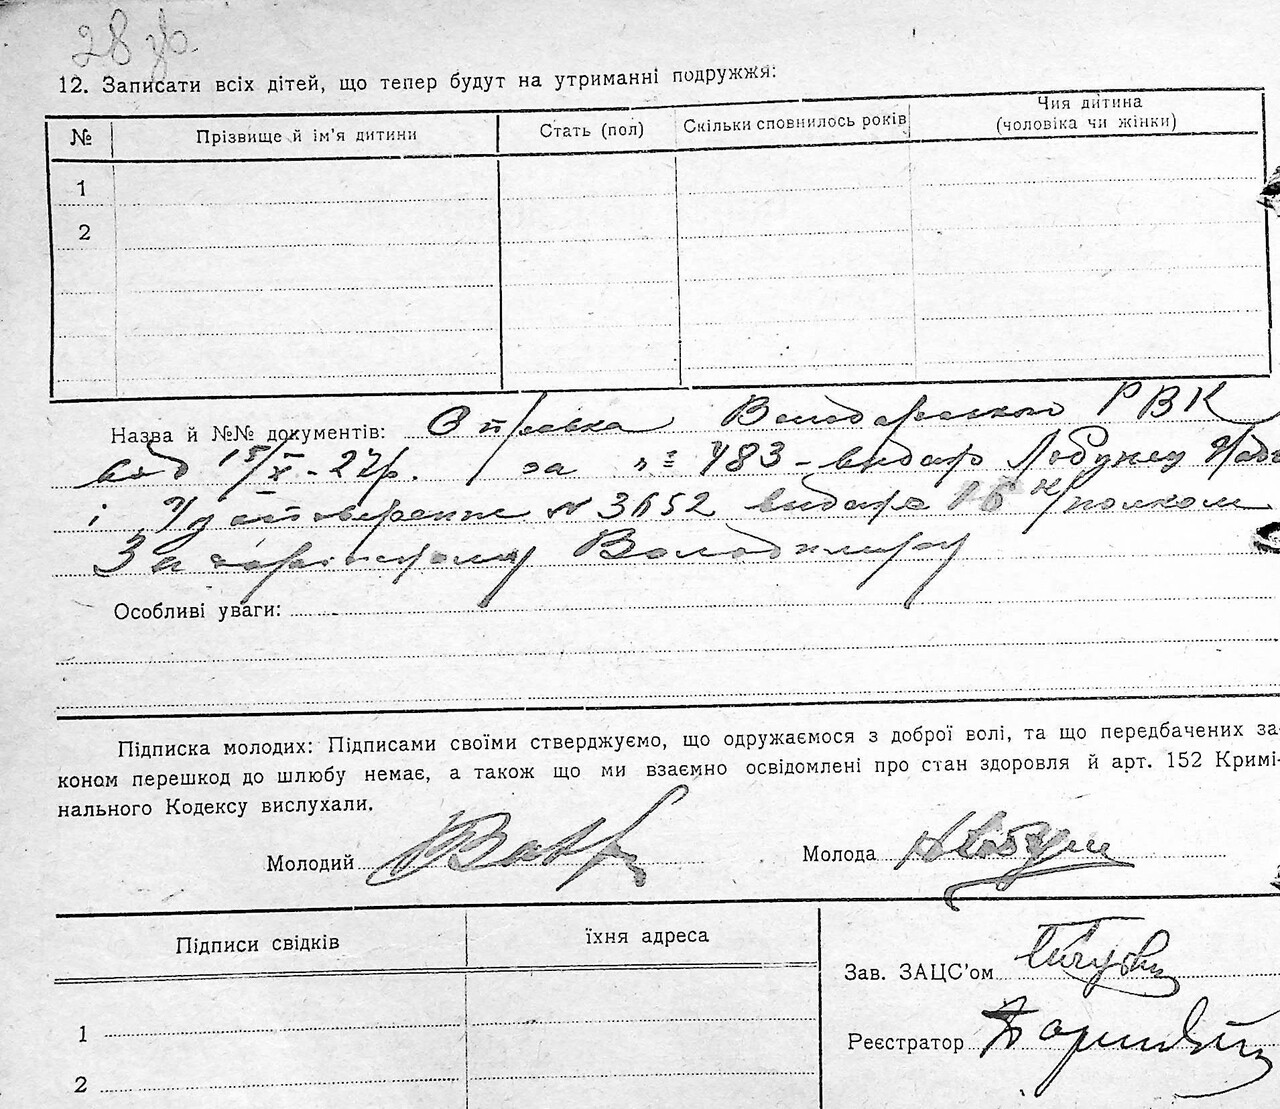 28 зв.
12. Записати всіх дітей, що тепер будут на утриманні подружжя:
№ Прізвище й ім'я дитини Стать (пол) Скільки сповнилось років Чия дитина (чоловіка чи жінки)
1
2
Назва й №№ документів: Справка Володарського РВК
від 15/X-27р. за № 483 - видар Лобунец
і Удостоверение № 3652 видара 16 полком
Володимиру
Особливі уваги:
Підписка молодих: Підписами своїми стверджуємо, що одружаємося з доброї волі, та що передбачених за-
коном перешкод до шлюбу немає, а також що ми взаємно освідомлені про стан здоровля й арт. 152 Кримі-
нального Кодексу вислухали.
Молодий Молода
Підписи свідків їхня адреса
Зав. ЗАЦС'ом
Реєстратор
1
2